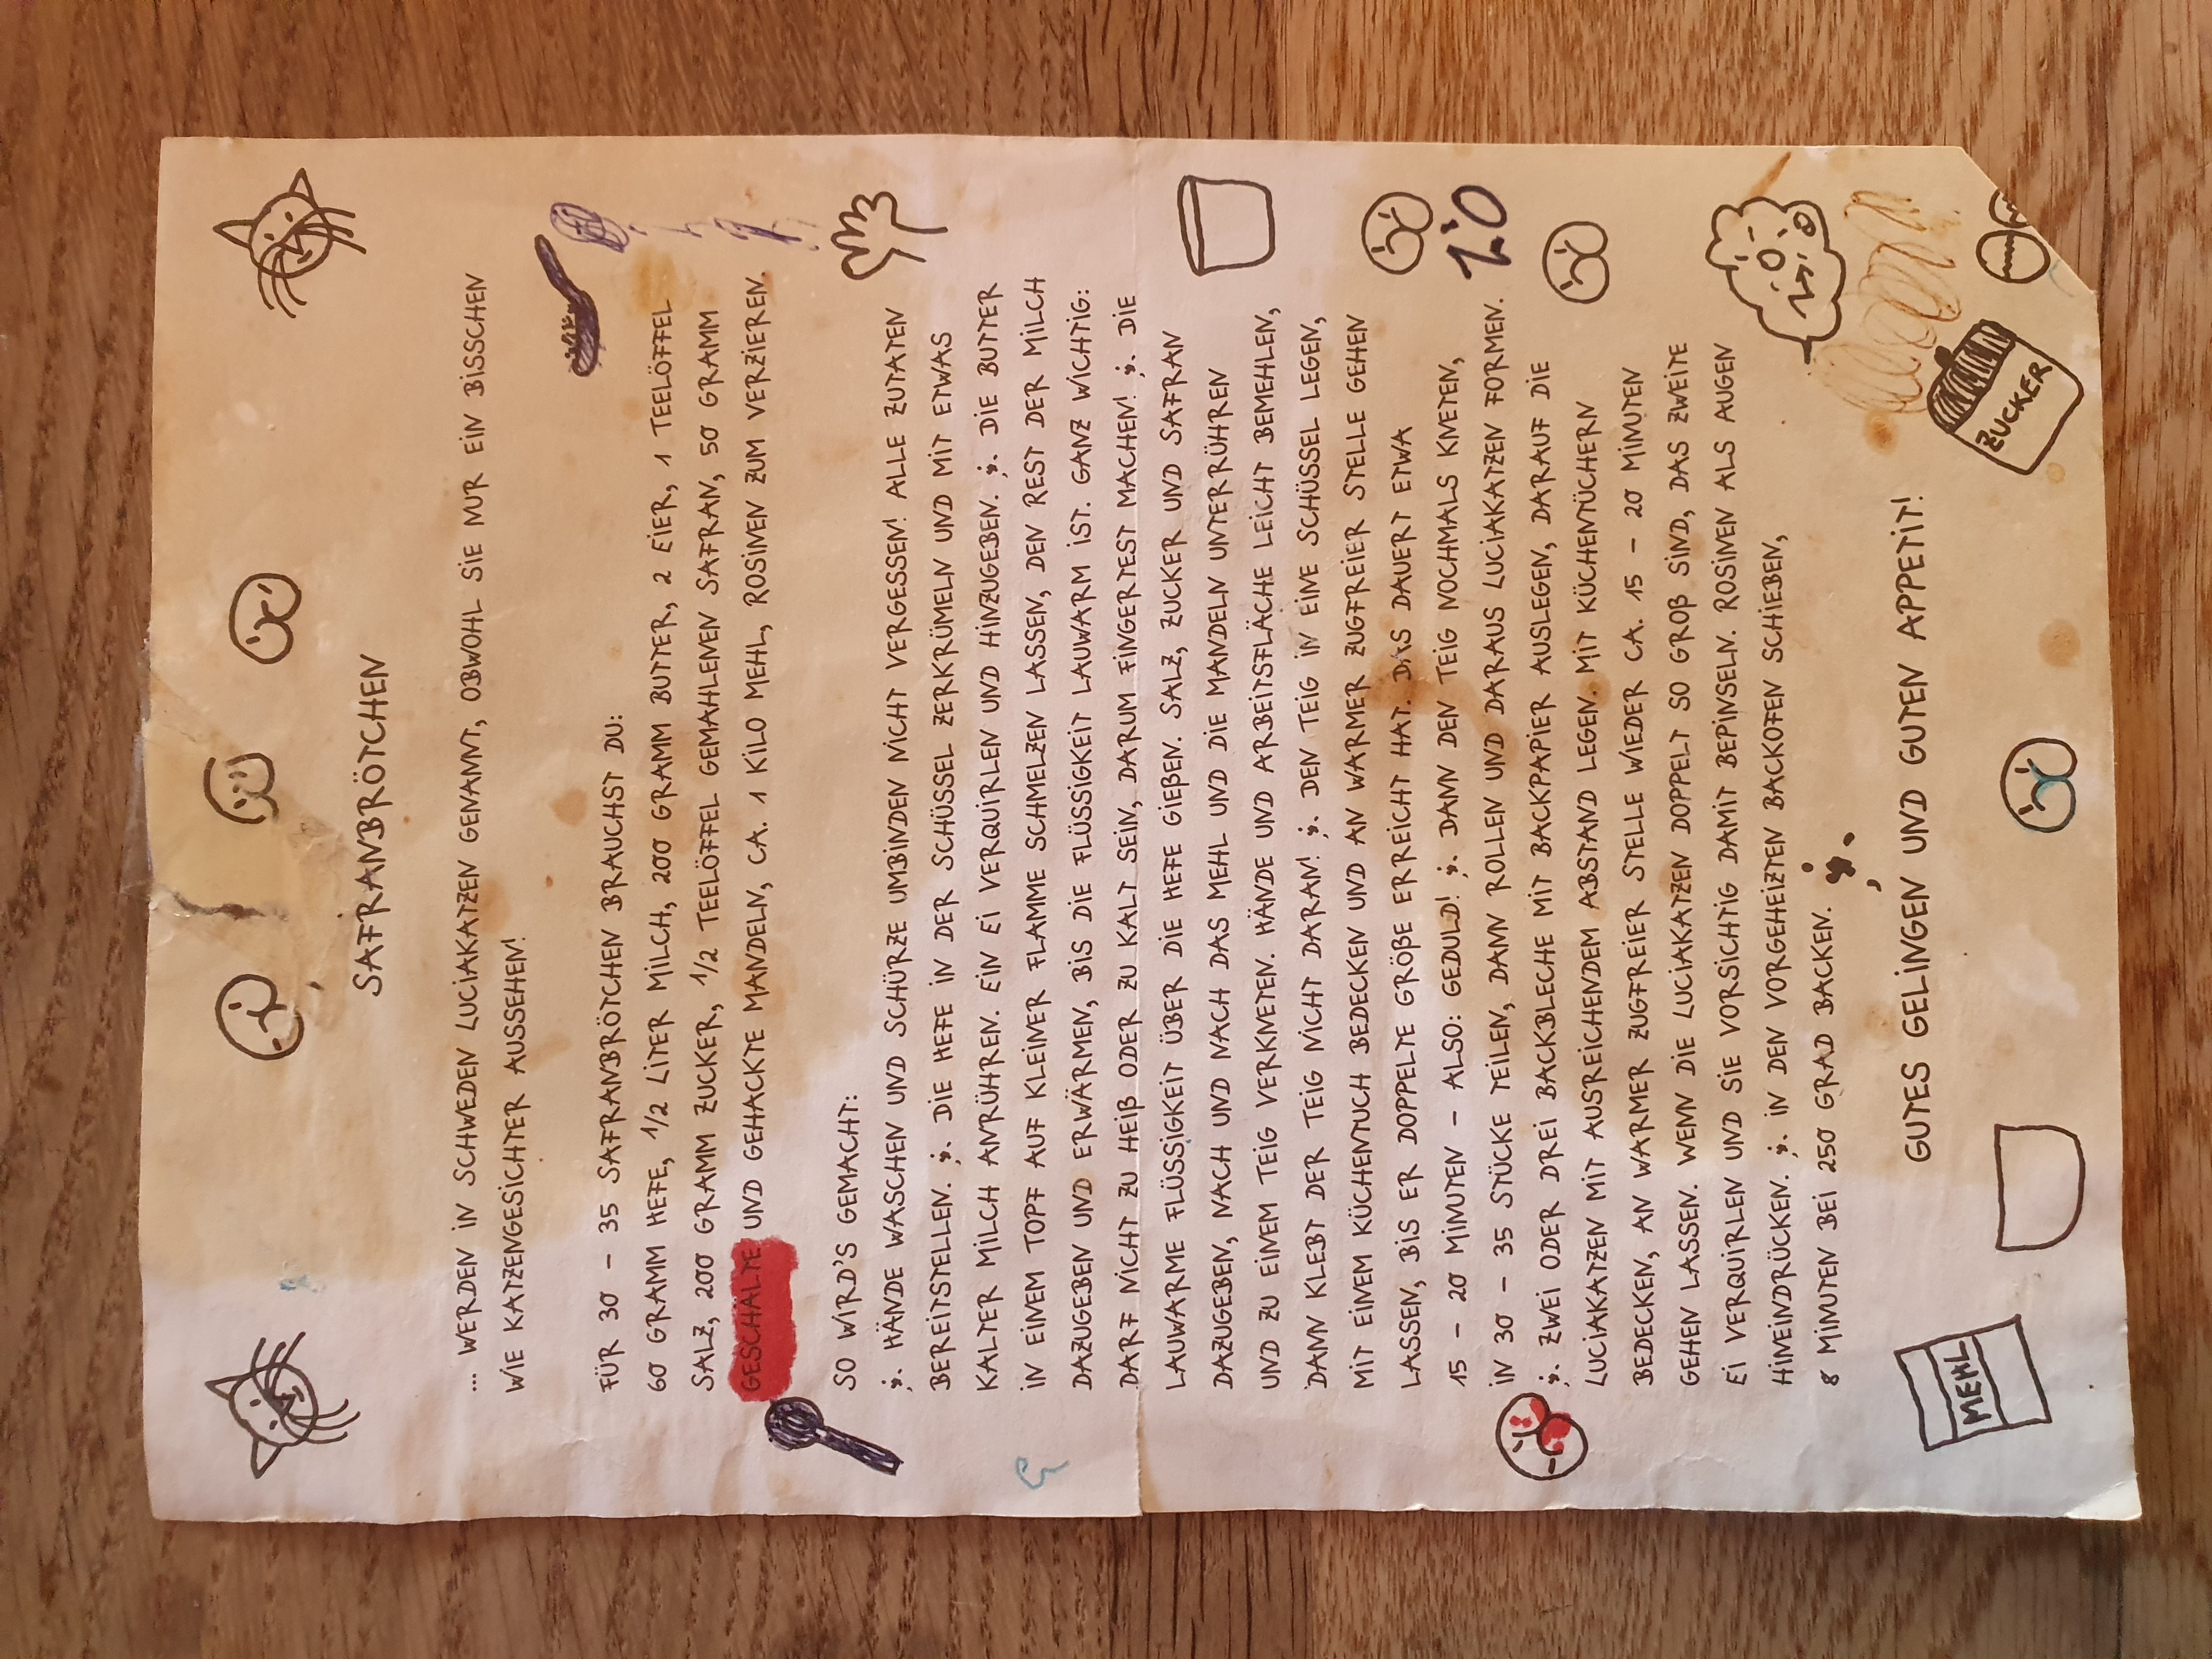 SAFRANBRÖTCHEN
... WERDEN IN SCHWEDEN LUCIAKATZEN GENANNT, OBWOHL SIE NUR EIN BISSCHEN
WIE KATZENGESICHTER AUSSEHEN!
FÜR 30 - 35 SAFRANBRÖTCHEN BRAUCHST DU:
60 GRAMM HEFE, 1/2 LITER MILCH, 200 GRAMM BUTTER, 2 EIER, 1 TEELÖFFEL
SALZ, 200 GRAMM ZUCKER, 1/2 TEELÖFFEL GEMAHLENEN SAFRAN, 50 GRAMM
GESCHÄLTE UND GEHACKTE MANDELN, CA. 1 KILO MEHL, ROSINEN ZUM VERZIEREN.
SO WIRD'S GEMACHT:
HÄNDE WASCHEN UND SCHÜRZE UMBINDEN NICHT VERGESSEN! ALLE ZUTATEN
BEREITSTELLEN. DIE HEFE IN DER SCHÜSSEL ZERKRÜMELN UND MIT ETWAS
KALTER MILCH ANRÜHREN. EIN EI VERQUIRLEN UND HINZUGEBEN. DIE BUTTER
IN EINEM TOPF AUF KLEINER FLAMME SCHMELZEN LASSEN, DEN REST DER MILCH
DAZUGEBEN UND ERWÄRMEN, BIS DIE FLÜSSIGKEIT LAUWARM IST. GANZ WICHTIG:
DARF NICHT ZU HEIß ODER ZU KALT SEIN, DARUM FINGERTEST MACHEN! DIE
LAUWARME FLÜSSIGKEIT ÜBER DIE HEFE GIEßEN. SALZ, ZUCKER UND SAFRAN
DAZUGEBEN, NACH UND NACH DAS MEHL UND DIE MANDELN UNTERRÜHREN
UND ZU EINEM TEIG VERKNETEN. HÄNDE UND ARBEITSFLÄCHE LEICHT BEMEHLEN,
DANN KLEBT DER TEIG NICHT DARAN! DEN TEIG IN EINE SCHÜSSEL LEGEN,
MIT EINEM KÜCHENTUCH BEDECKEN UND AN WARMER ZUGFREIER STELLE GEHEN
LASSEN, BIS ER DOPPELTE GRÖßE ERREICHT HAT. DAS DAUERT ETWA
15 - 20 MINUTEN - ALSO: GEDULD! DANN DEN TEIG NOCHMALS KNETEN,
IN 30 - 35 STÜCKE TEILEN, DANN ROLLEN UND DARAUS LUCIAKATZEN FORMEN.
ZWEI ODER DREI BACKBLECHE MIT BACKPAPIER AUSLEGEN, DARAUF DIE
LUCIAKATZEN MIT AUSREICHENDEM ABSTAND LEGEN. MIT KÜCHENTÜCHERN
BEDECKEN, AN WARMER ZUGFREIER STELLE WIEDER CA. 15 - 20 MINUTEN
GEHEN LASSEN. WENN DIE LUCIAKATZEN DOPPELT SO GROß SIND, DAS ZWEITE
EI VERQUIRLEN UND SIE VORSICHTIG DAMIT BEPINSELN. ROSINEN ALS AUGEN
HINEINDRÜCKEN. IN DEN VORGEHEIZTEN BACKOFEN SCHIEBEN,
8 MINUTEN BEI 250 GRAD BACKEN.
GUTES GELINGEN UND GUTEN APPETIT!
MEHL
ZUCKER